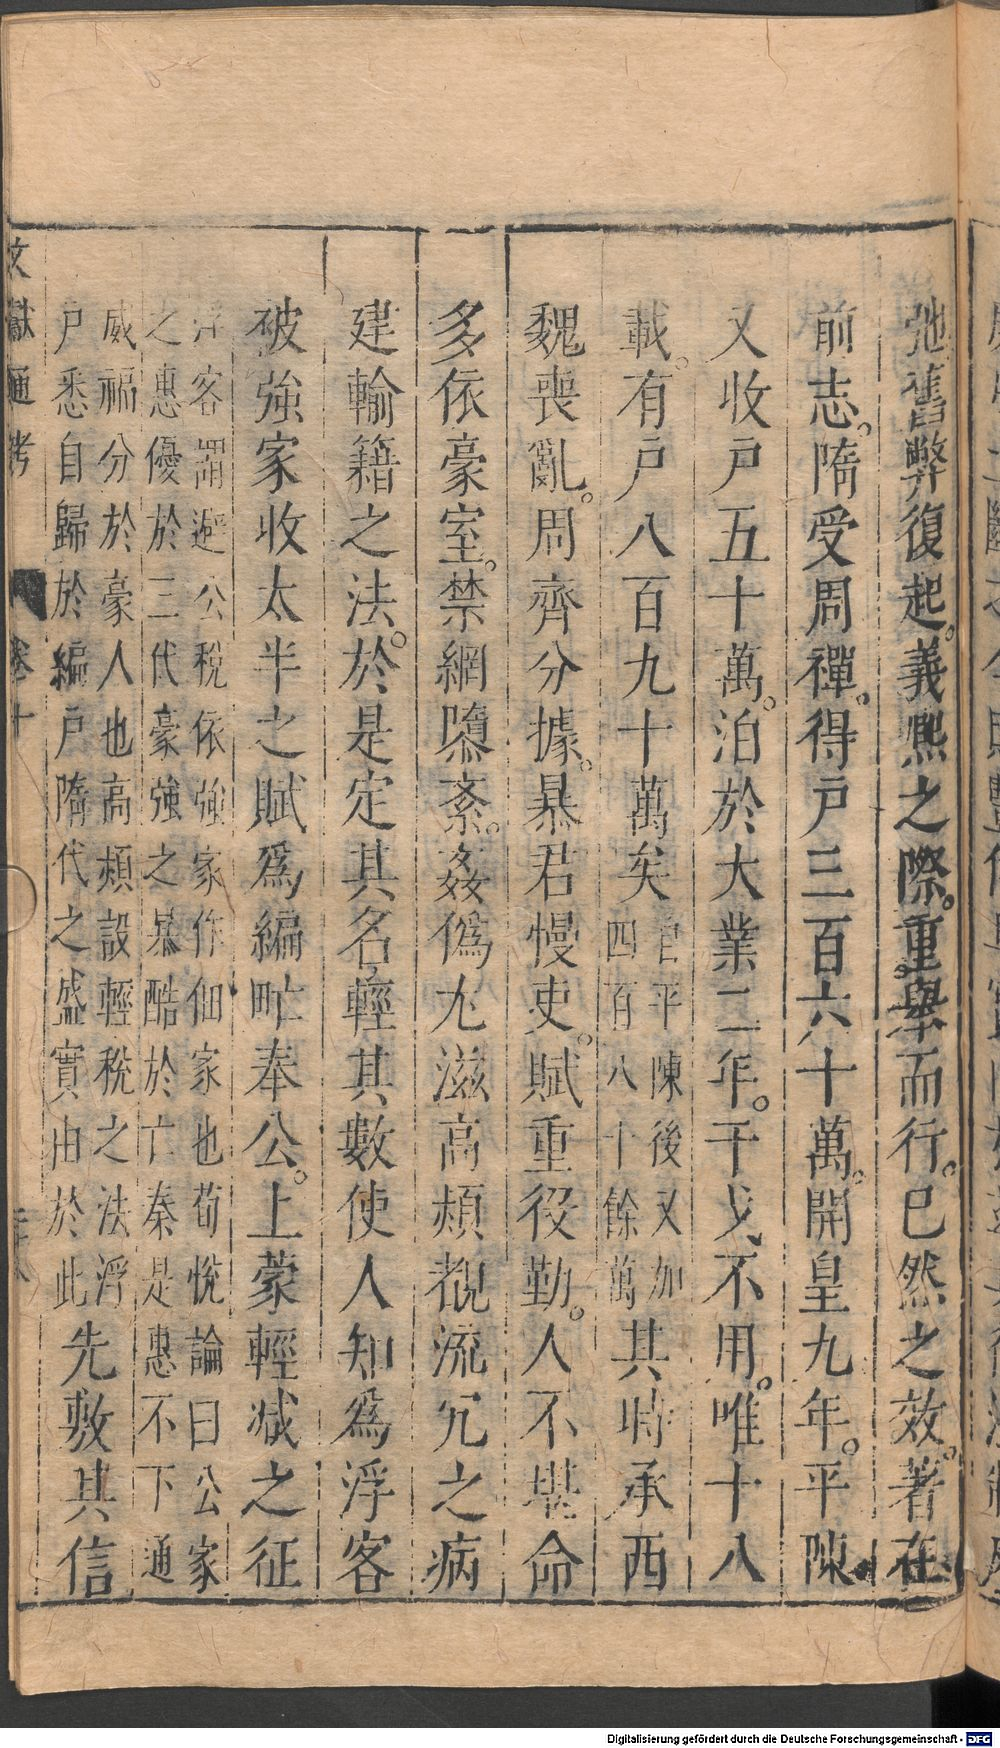 弛舊弊復起。義熙之際。重舉而行。已然之效。著在
前志。隋受周禪。得戸三百六十萬。開皇九年。平陳
又收戸五十萬。洎於大業二年。干戈不用。唯十八
載。有戸八百九十萬矣自平陳後又加四百八十餘萬其時承西
魏喪亂。周齊分據。暴君慢吏。賦重役勤。人不堪命
多依豪室。禁網隳紊。姦僞尤滋高熲覩流冗之病
建輸籍之法。於是定其名輕其數使人知爲浮客
被強家收太半之賦爲編甿奉公。上蒙輕減之征
浮客謂避公稅依強家作佃家也荀悅論曰公家
之惠優於三代豪強之暴酷於亡秦是惠不下通
威福分於豪人也高熲設輕稅之法浮
戸悉自歸於編戸隋代之盛實由於此先敷其信
文獻通考 卷十
Digitalisierung gefördert durch die Deutsche Forschungsgemeinschaft - DFG